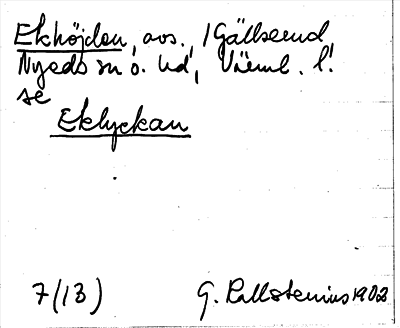 Ekhöjden, avs., i Gällserud,
Nyeds sn o. hd, Värml. l.
se
Eklyckan
7/(13)
G. Kallstenius 1902